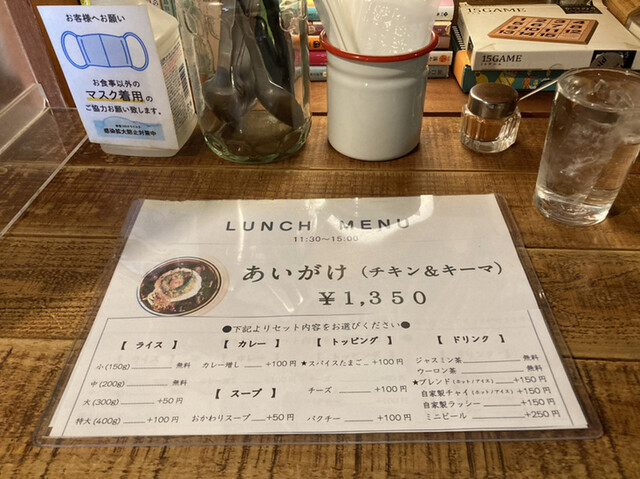 お客様へお願い
お食事以外の
マスク着用の
ご協力お願い致します。
感染拡大防止対策中
15GAME
15GAME
LUNCH MENU
11:30～15:00
あいがけ（チキン＆キーマ）
￥1,350
●下記よりセット内容をお選びください●
【 ライス 】
小(150g) 無料
中(200g) 無料
大(300g) +50円
特大(400g) +100円
【 カレー 】
カレー増し +100円
【 スープ 】
おかわりスープ +50円
【 トッピング 】
★スパイスたまご +100円
チーズ +100円
パクチー +100円
【 ドリンク 】
ジャスミン茶 無料
ウーロン茶 無料
★ブレンド(ホット/アイス) +150円
自家製チャイ(ホット/アイス) +150円
自家製ラッシー +150円
ミニビール +250円